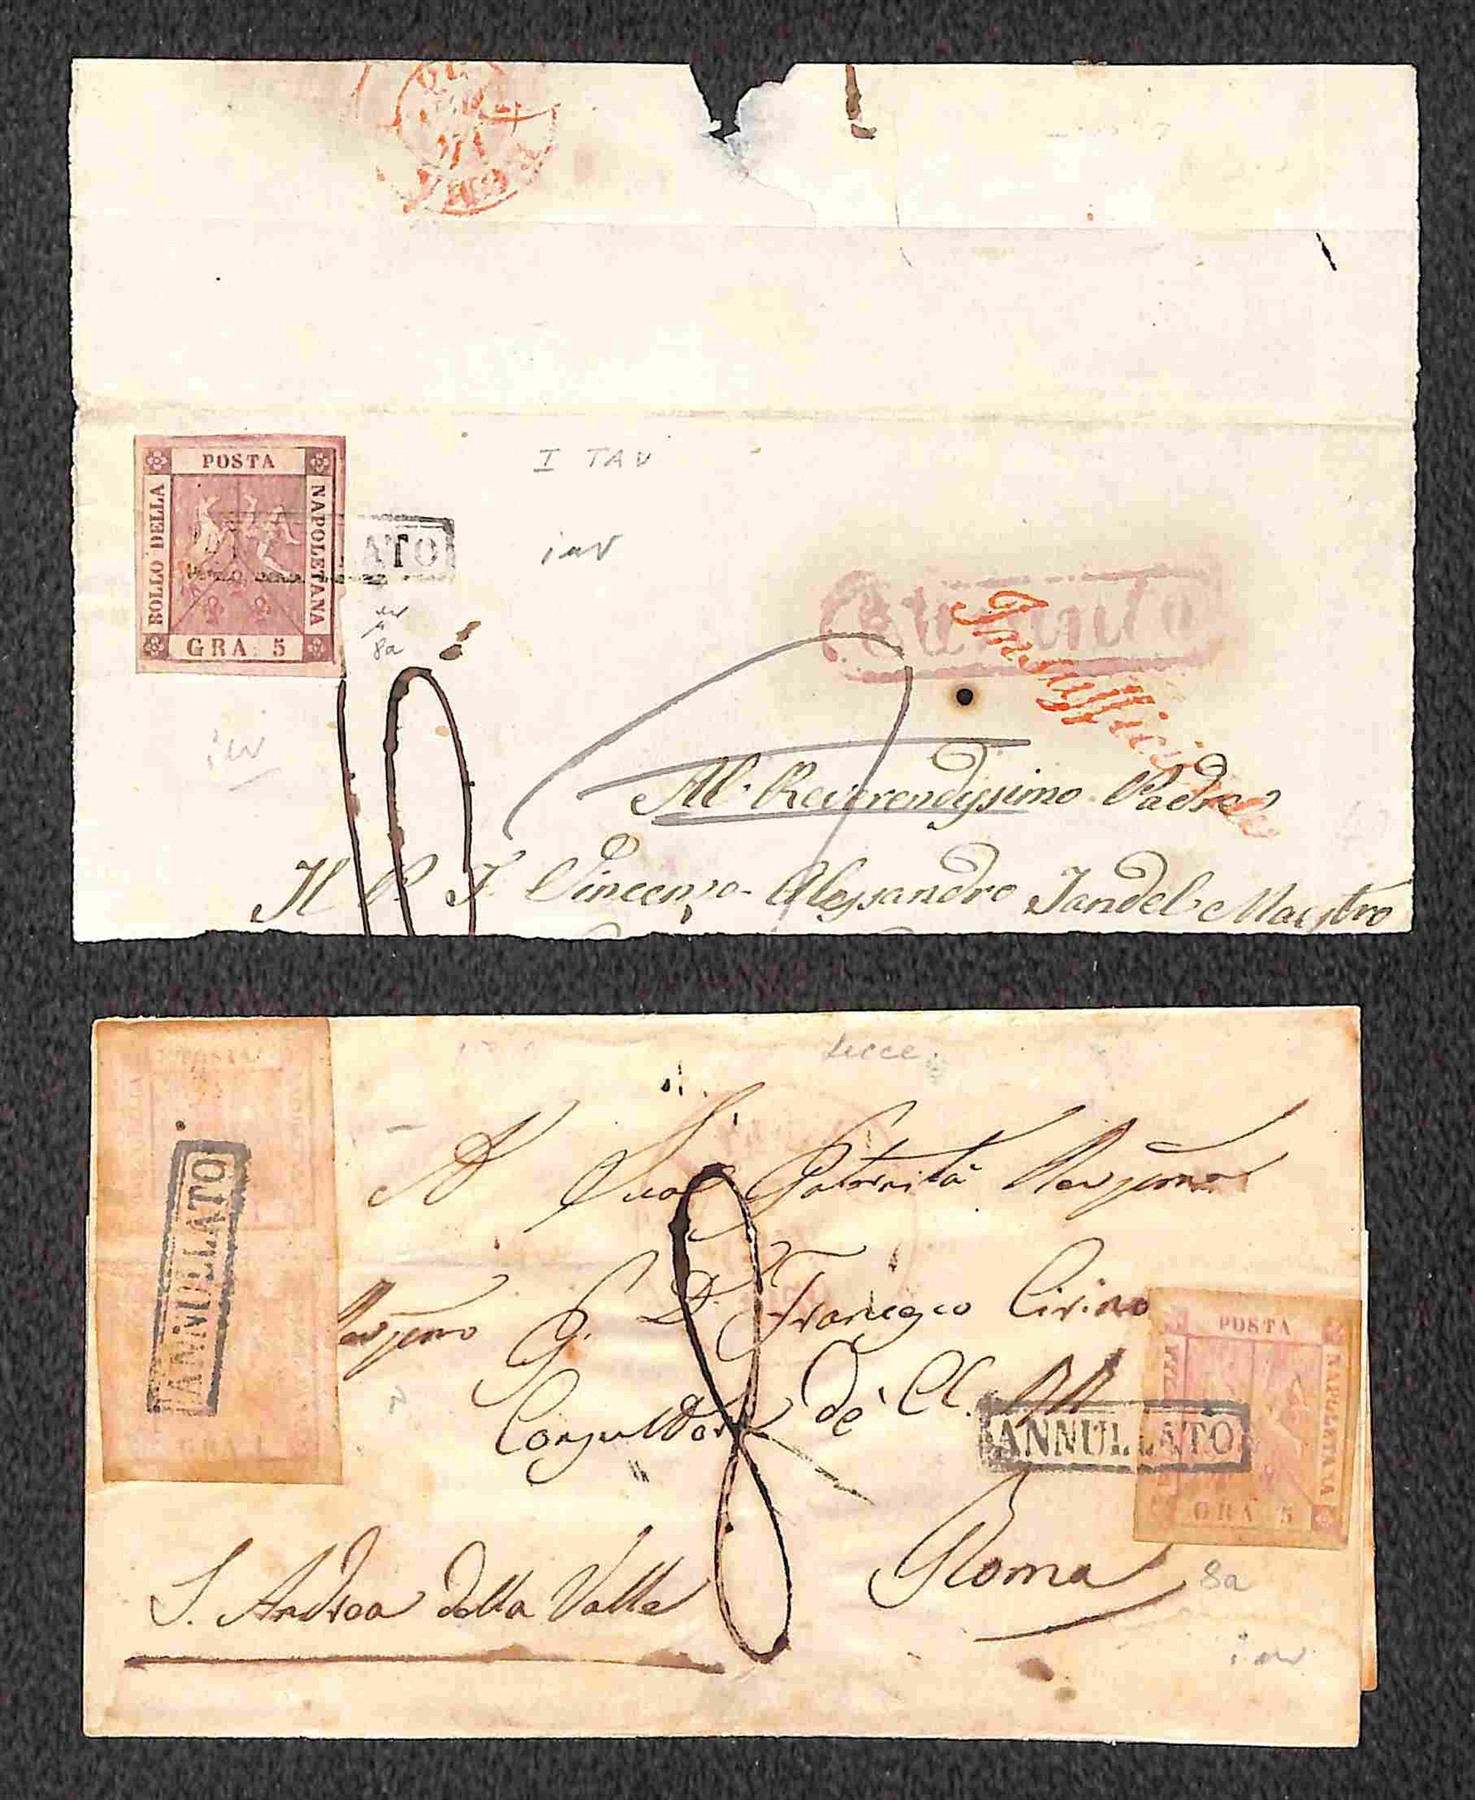 POSTA
BOLLO DELLA
NAPOLETANA
GRA. 5
ATO
I TAV
8a
Insufficiente
Al Reverendissimo Padre
Il P. F. Vincenzo Alessandro Jandel Maestro
Lecce
POSTA
GRA 1
ANNULLATO
A Sua Paternità Revma
G. D. Francesco Cirino
Consultore de' CC. RR.
POSTA
NAPOLETANA
GRA 5
ANNULLATO
S. Andrea della Valle
Roma
8a